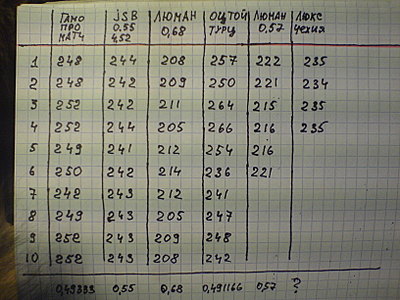 ГАМО ПРО МАТЧ | JSB 0.55 4,52 | ЛЮМАН 0,68 | ОЦТОЙ ТУРЦ | ЛЮМАН 0,57 | ЛЮКС ЧЕХИЯ
1 248 244 208 257 222 235
2 248 242 209 250 221 234
3 252 242 211 264 215 235
4 252 244 205 266 216 235
5 249 241 212 254 216
6 250 242 214 236 221
7 242 243 212 241
8 249 243 205 247
9 252 243 209 248
10 252 243 208 242
0,49333 0,55 0,68 0,491166 0,57 ?